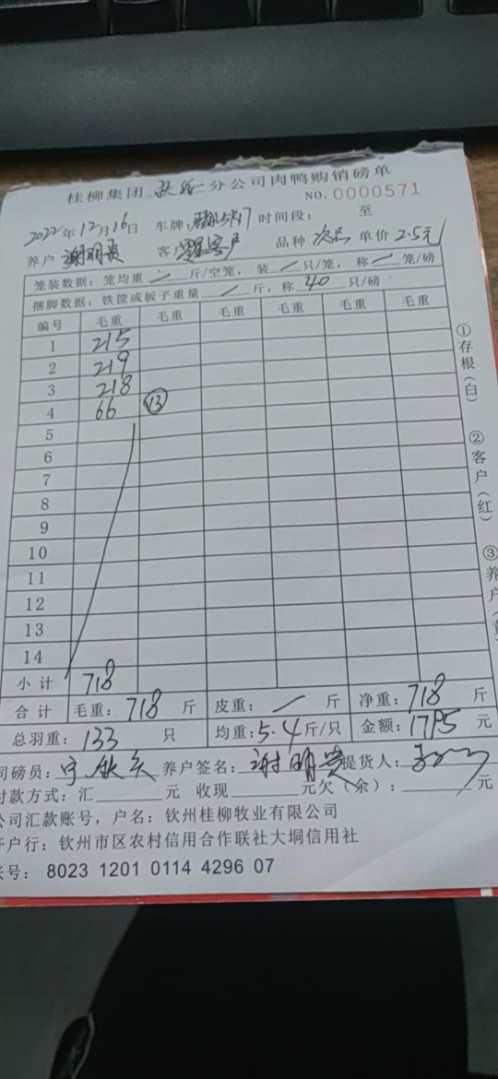 桂柳集团 钦州 分公司肉鸭购销磅单
NO. 0000571
2022年12月16日 车牌: 时间段: 至
养户 谢明贵 客户 品种 次品 单价 2.5元
笼装数据: 笼均重 / 斤/空笼, 装 / 只/笼, 称 / 笼/磅
捆脚数据: 铁筐或板子重量 / 斤, 称 40 只/磅
编号 毛重 毛重 毛重 毛重 毛重 毛重
1 215
2 219
3 218
4 66 13
5
6
7
8
9
10
11
12
13
14
小计 718
合计 毛重: 718 斤 皮重: / 斤 净重: 718 斤
总羽重: 133 只 均重: 5.4 斤/只 金额: 1795 元
司磅员: 养户签名: 谢明贵 提货人:
付款方式: 汇 元 收现 元欠(余): 元
公司汇款账号, 户名: 钦州桂柳牧业有限公司
开户行: 钦州市区农村信用合作联社大垌信用社
账号: 8023 1201 0114 4296 07
①存根(白)
②客户(红)
③养户(